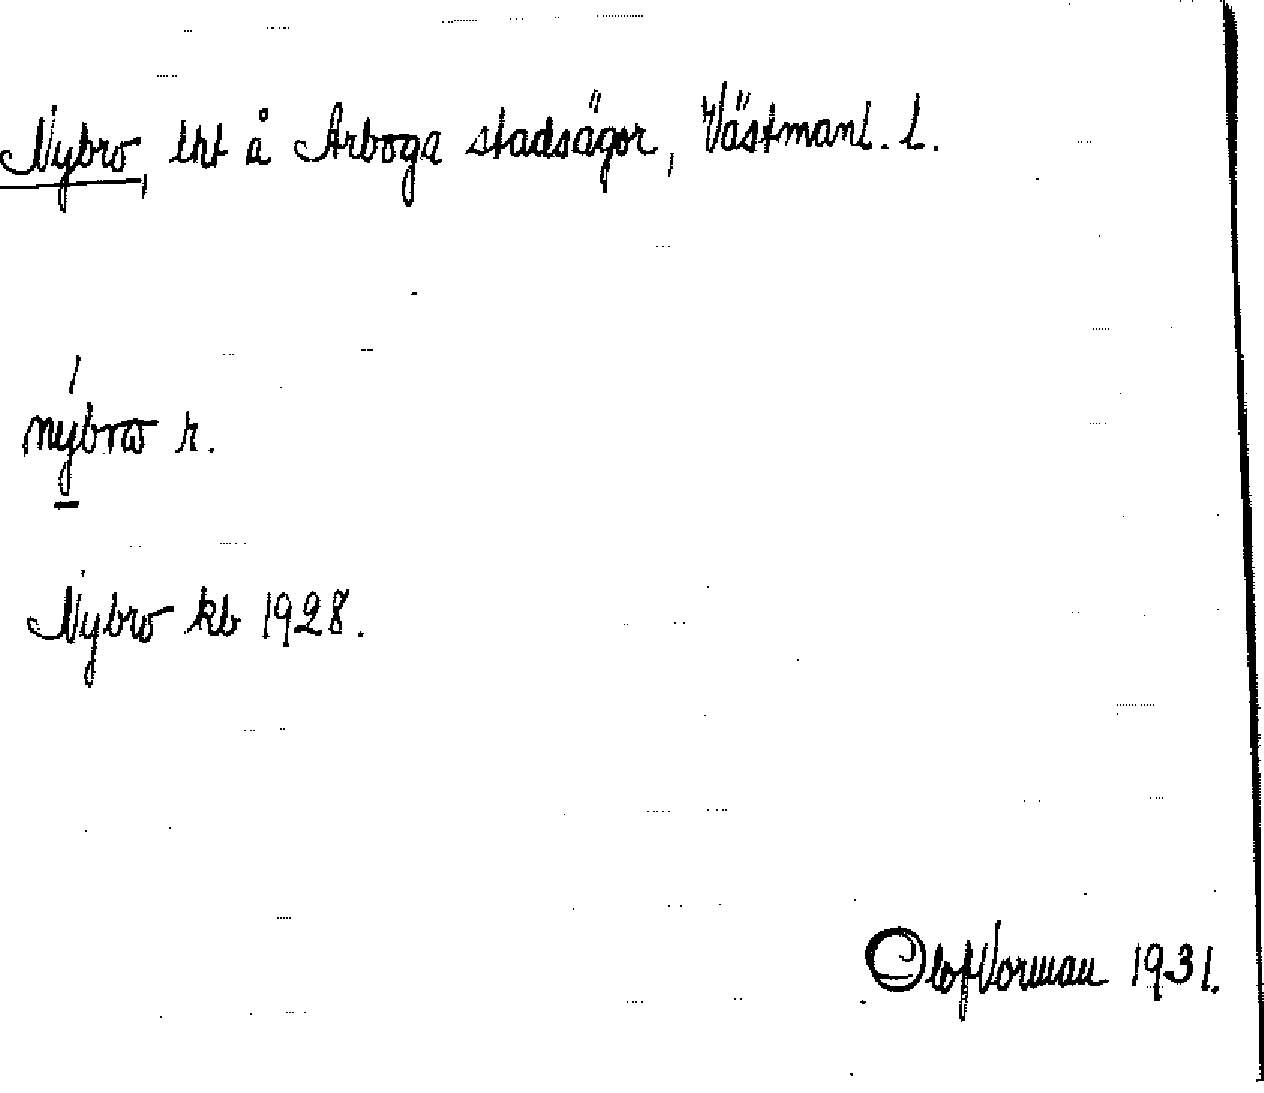 Nybro, lht å Arboga stadsägor, Västmanl. l.
nýbrω r.
Nybro kb 1928.
Olof Norman 1931.